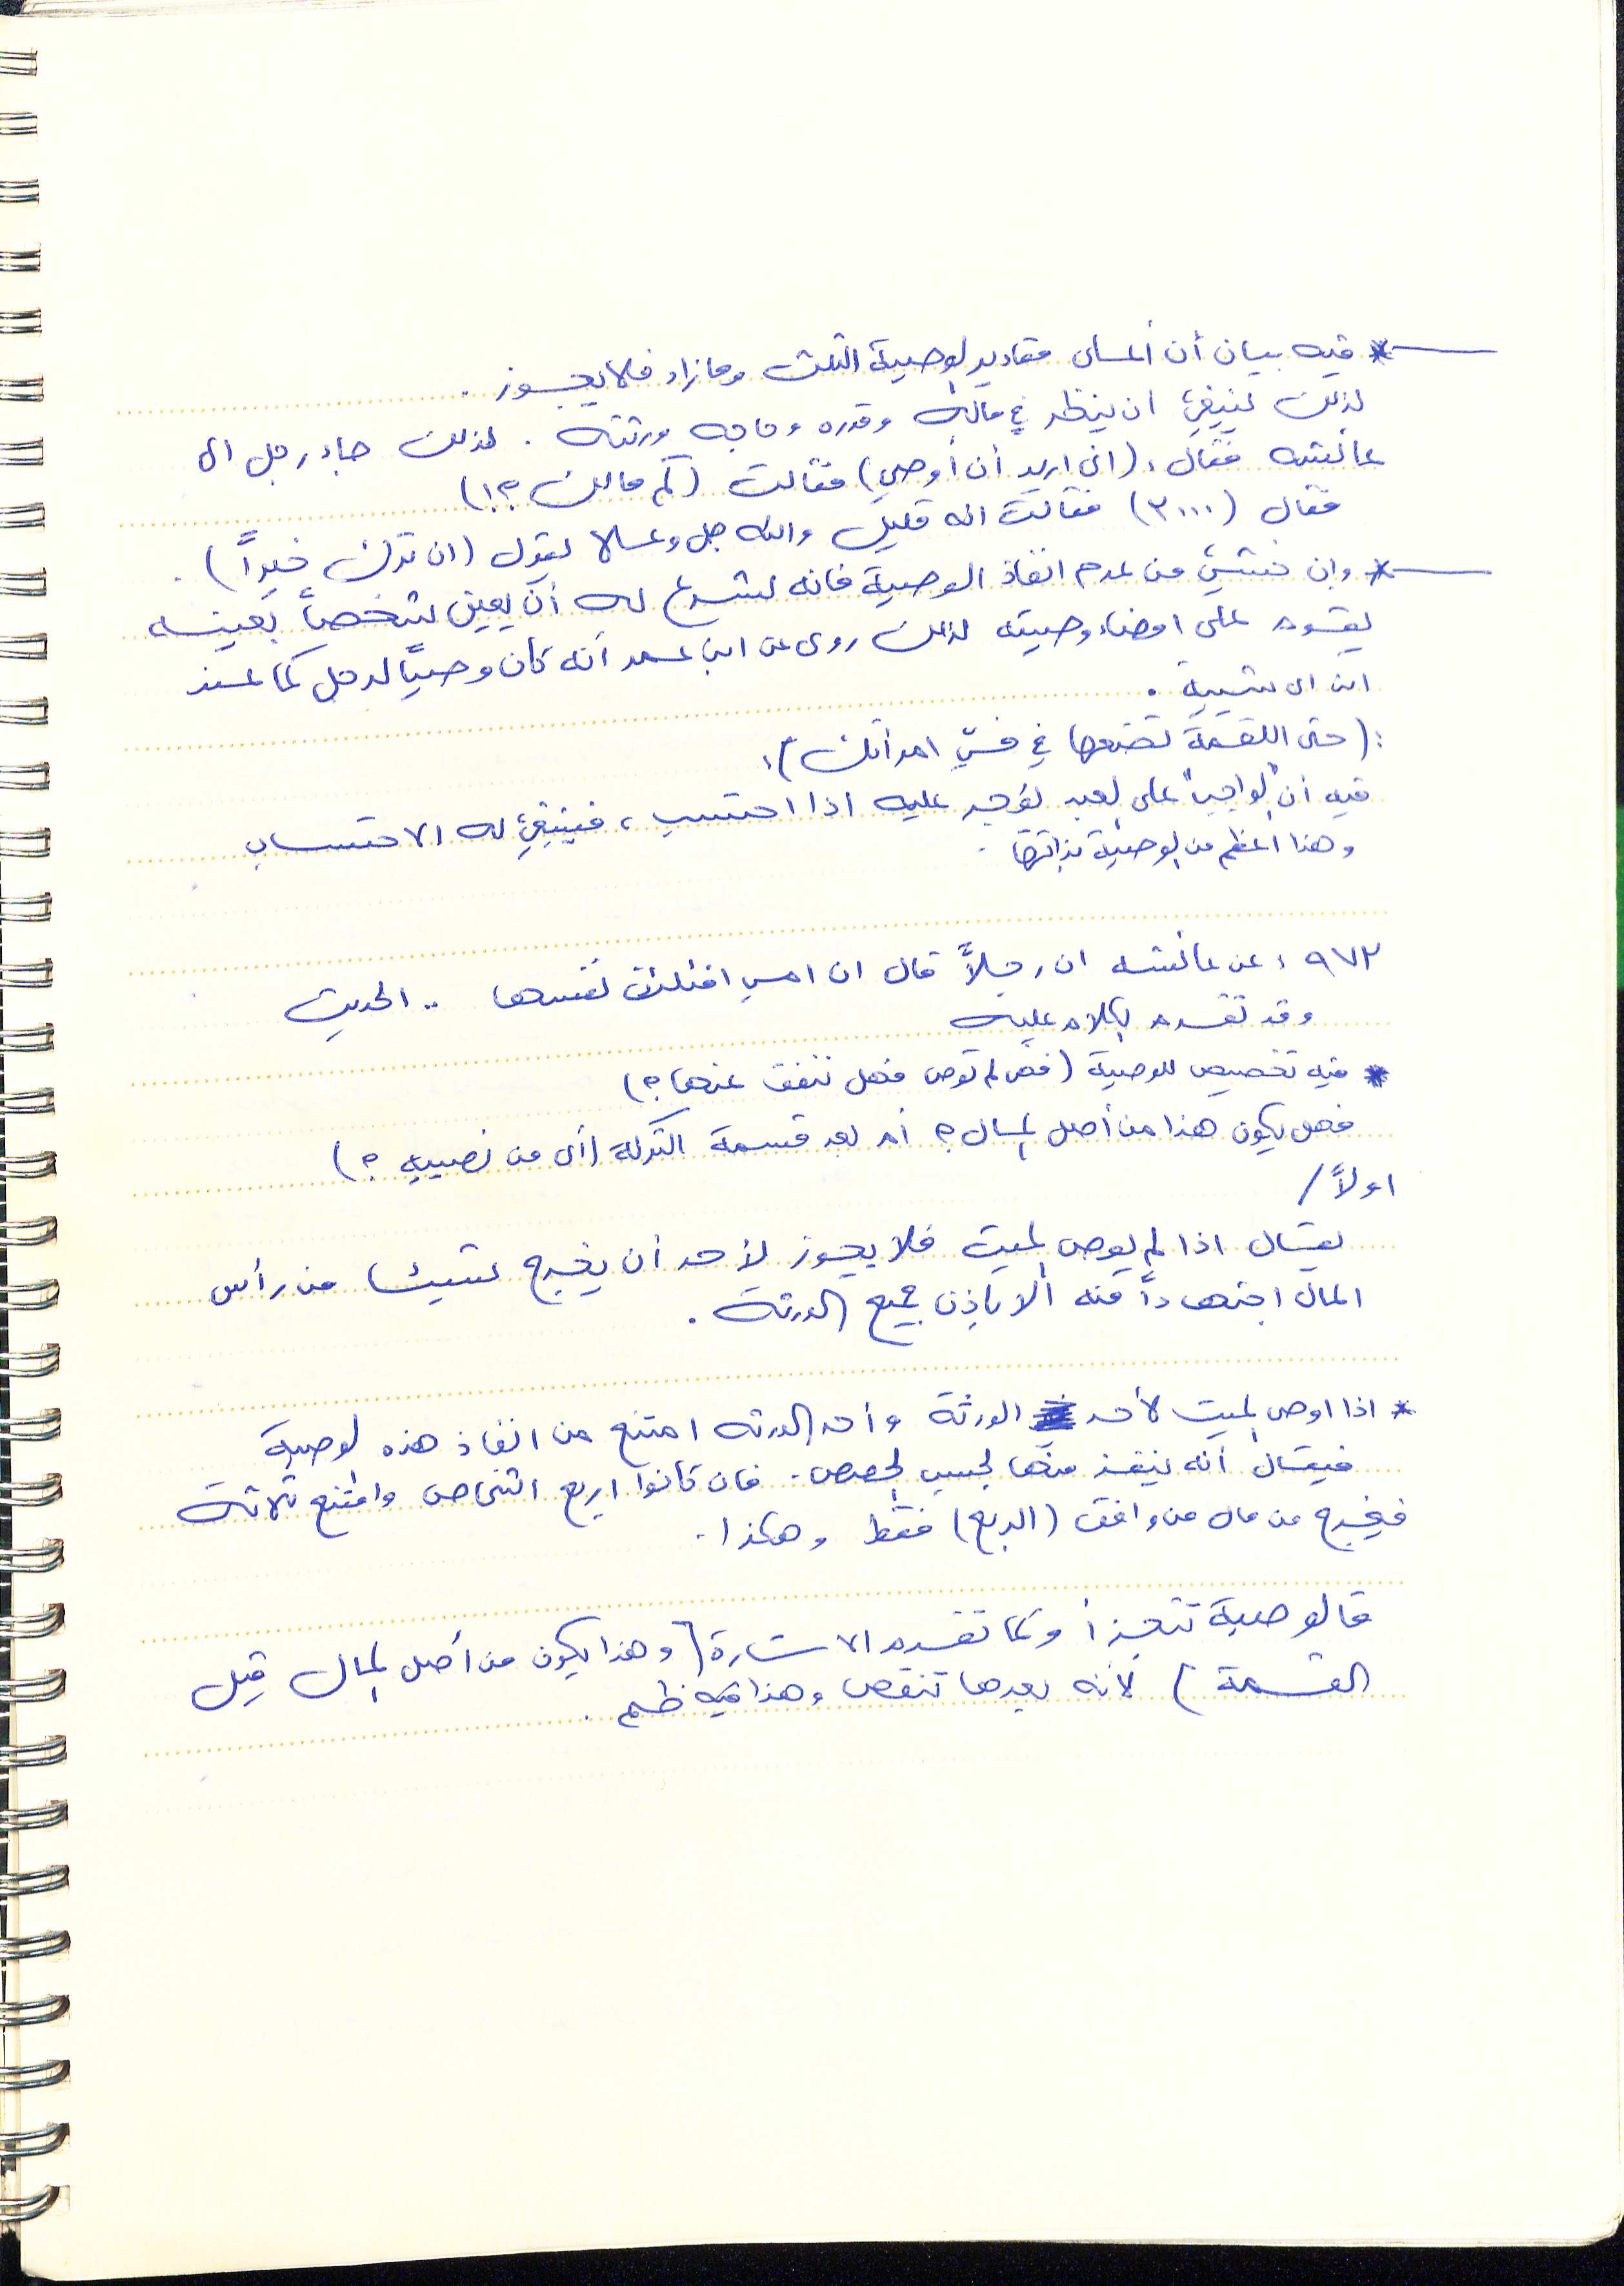 * فيه بيان أن أعلى مقادير الوصية الثلث وما زاد فلا يجوز .
لذلك ينبغي ان ينظر في ماله وقدره وحاجه ورثته . لذلك جاء رجل الى
عائشه فقال : (انى اريد أن أوصي) فقالت (كم مالك ؟!)
فقال (٣٠٠٠) فقالت انه قليل والله جل وعلا يقول (ان ترك خيراً) .
* وإن خشي من عدم انفاذ الوصية فانه يشرع له أن يعين شخصاً بعينه
يقوم على امضاء وصيته لذلك روى عن ابن عمر أنه كان وصياً لرجل كما عند
ابن ابى شيبة .
: (حتى اللقمة تضعها في فيّ امرأتك) :
فيه أن "الواجب" على العبد يؤجر عليه اذا احتسب ، فينبغي له الاحتساب
وهذا اعظم من الوصية بذاتها .
٩٧٢ : عن عائشه ان رجلاً قال ان امي افتلتت نفسها .. الحديث
وقد تقدم الكلام عليه
* فيه تخصيص للوصية (فمن لم توص فهل ننفق عنها ؟)
فهل يكون هذا من أصل المال ؟ أم بعد قسمة التركة (أى من نصيبه ؟)
اولاً /
يقال اذا لم يوص الميت فلا يجوز لأحد أن يخرج شيئا من رأس
المال اجتهاداً منه الا باذن جميع الورثة .
* اذا اوصى الميت لأحد الورثة وأحد الورثه امتنع من انفاذ هذه الوصية
فيقال أنه ينفذ منها بحسب الحصص . فان كانوا اربع اشخاص وامتنع ثلاثة
فيخرج من مال من وافق (الربع) فقط وهكذا .
فالوصية تتجزأ وكما تقدم الاشارة (وهذا يكون من أصل المال قبل
القسمة) لأنه بعدها تنقص وهذا فيه ظلم .